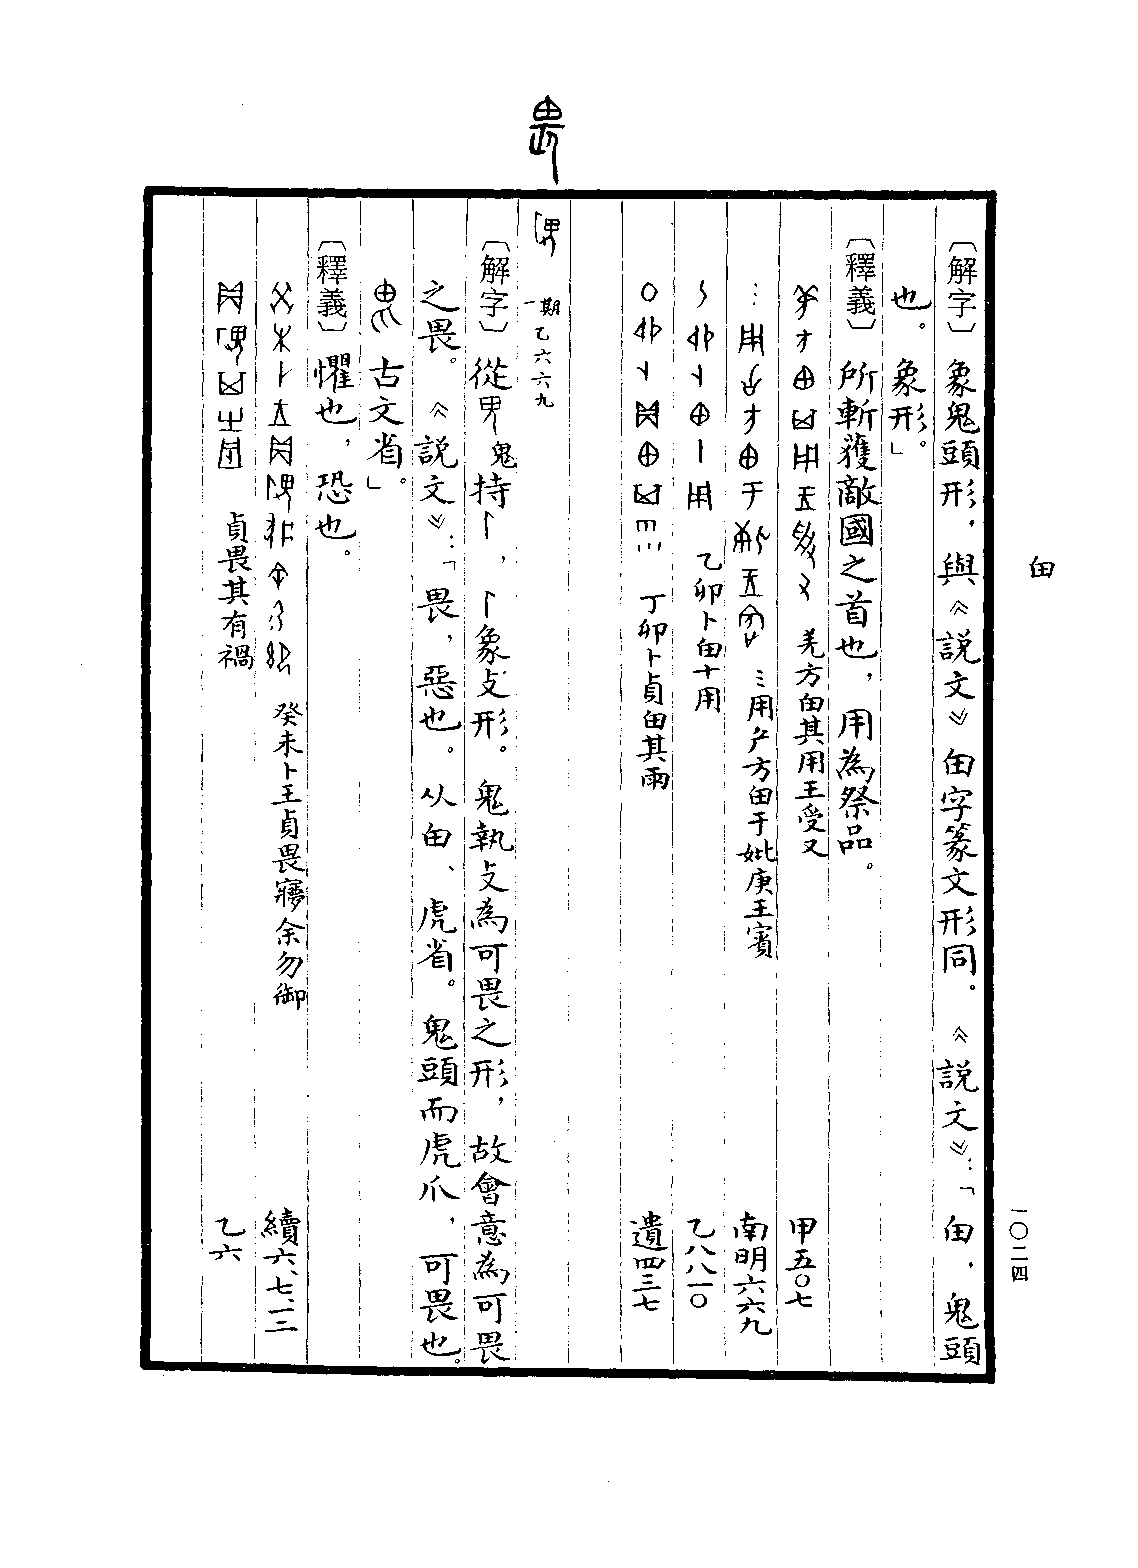 甶
一〇二四
〔解字〕象鬼頭形，與《説文》甶字篆文形同。《説文》：「甶，鬼頭
也。象形。」
〔釋義〕所斬獲敵國之首也，用為祭品。
羌方甶其用王受又 甲五〇七
用 方甶于妣庚王賓 南明六六九
乙卯卜甶十用 乙八八一〇
丁卯卜貞甶其雨 遺四三七
一期乙六六六九
〔解字〕從鬼持卜，卜象攴形。鬼執攴為可畏之形，故會意為可畏
之畏。《説文》：「畏，惡也。从甶、虎省。鬼頭而虎爪，可畏也。
古文省。」
〔釋義〕懼也，恐也。
癸未卜王貞畏寤余勿御 續六、七、一二
貞畏其有禍 乙六